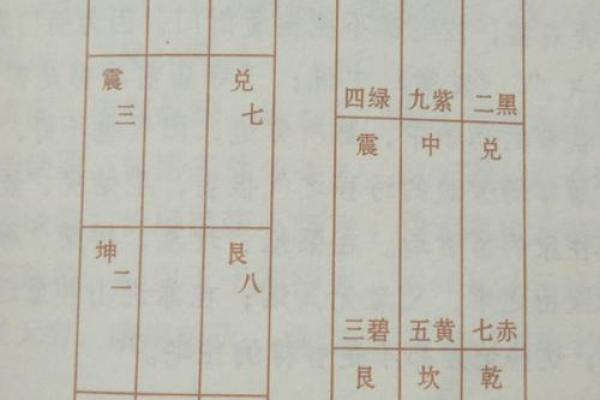 震 兑
三 七
坤 艮
二 八
四绿 九紫 二黑
震 中 兑
三碧 五黄 七赤
艮 坎 乾